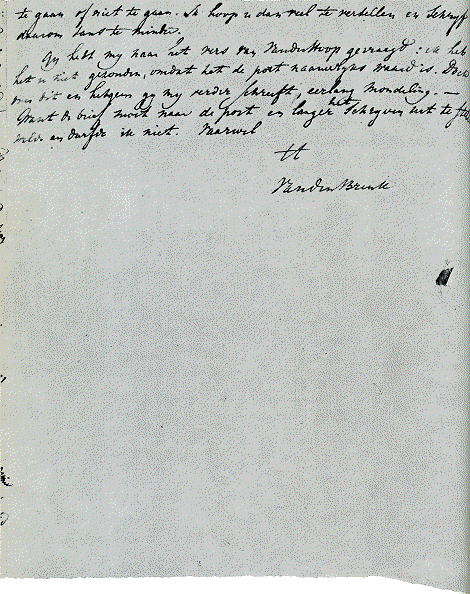 te gaan of niet te gaan. Ik hoop u dan veel te vertellen en schryf
daarom thans te minder.
Gy hebt my naar het vers van Vanderhoop gevraagd: ik heb
het u niet gezonden, omdat het de port naauwlyks waard is. Doch
over dit en hetgeen gy my verder schreeft, eerlang mondeling. —
Want de brief moet naar de post en langer het schryven uit te
wilde en durfde ik niet. Vaarwel
tt
VandenBrink